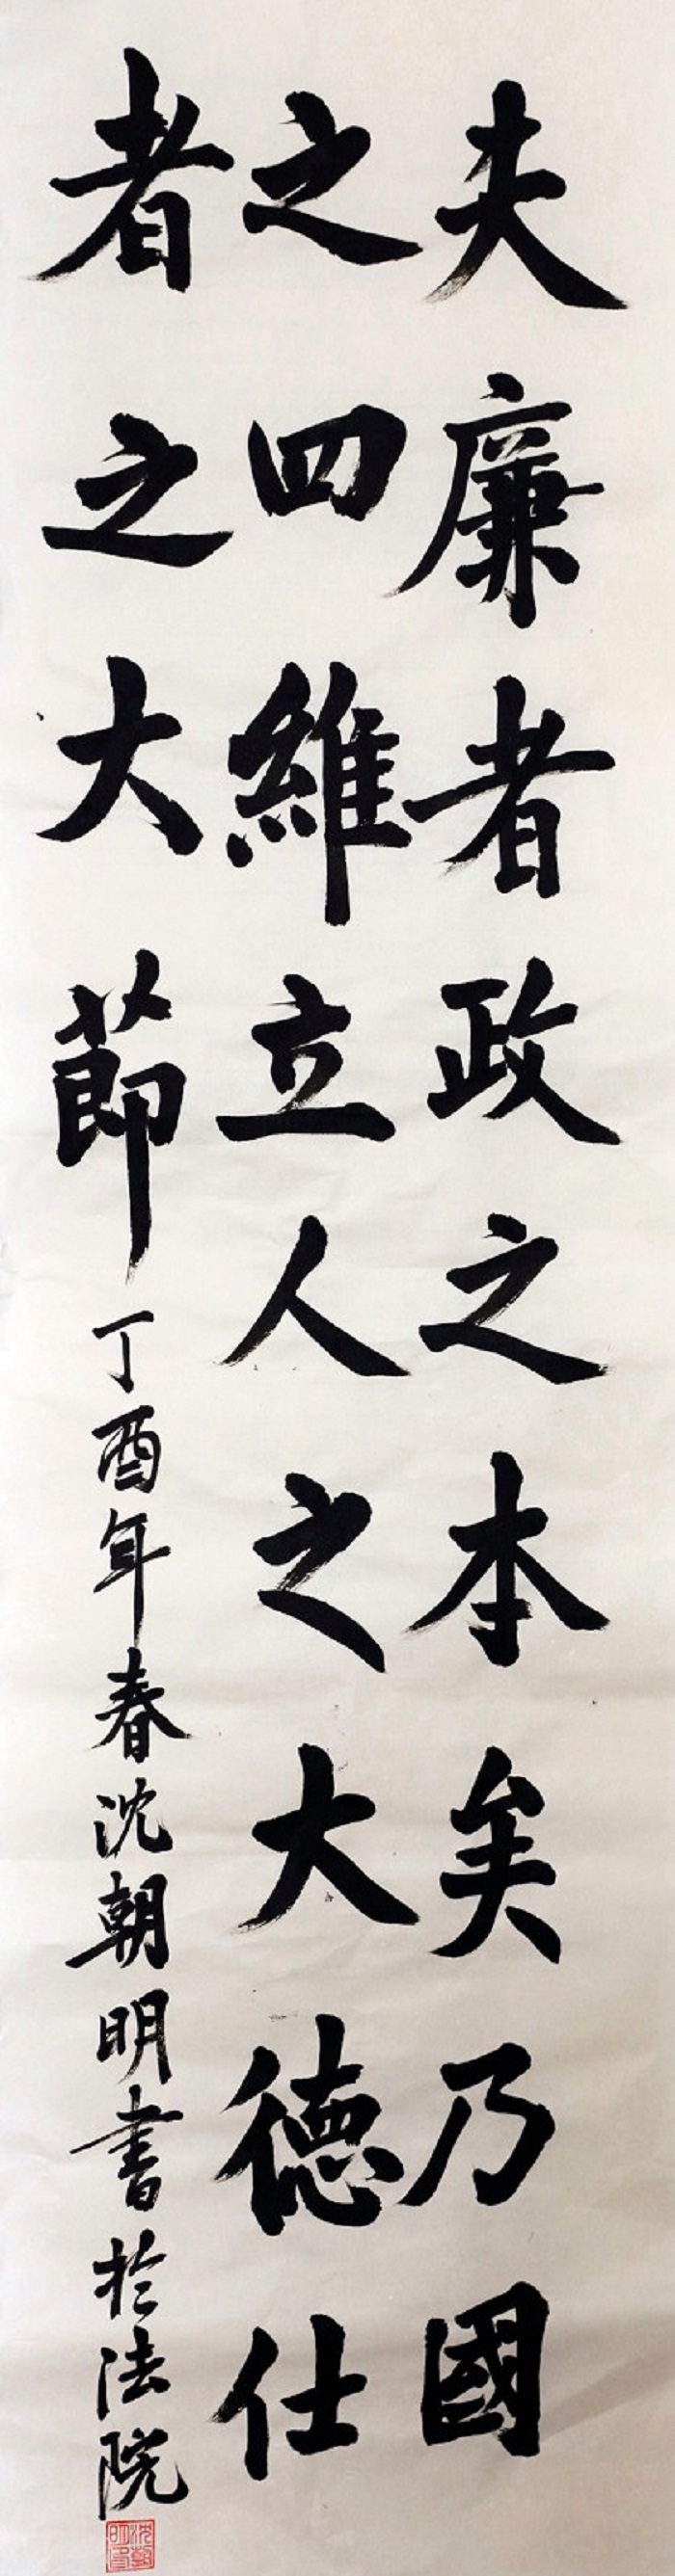 夫廉者政之本矣乃國
之四維立人之大德仕
者之大節丁酉年春沈朝明書於法院
沈朝明印